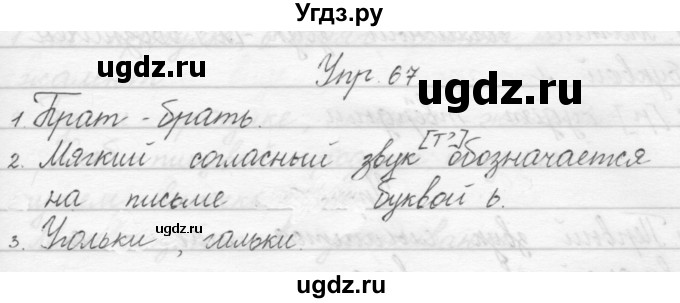 Угдз.ру
ugdz.ru ugdz.ru
Упр. 67
1. Брат - брать.
2. Мягкий согласный звук [т'] обозначается
на письме буквой ь.
ugdz.ru ugdz.ru
3. Угольки, гальки.
ugdz.ru